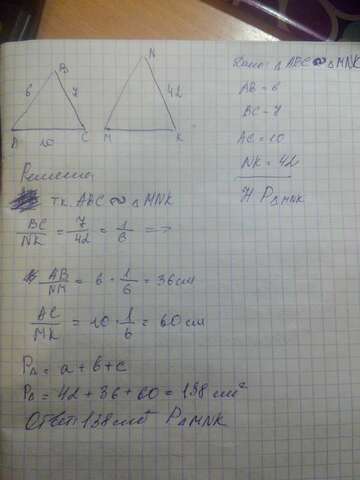 B
6
7
A
10
C
N
42
M
K
Дано: △ABC ∾ △MNK
AB = 6
BC = 7
AC = 10
NK = 42
Н. P△MNK
Решение
т.к. ABC ∾ △MNK
BC/NK = 7/42 = 1/6 =>
AB/NM = 6 · 1/6 = 36 см
AC/MK = 10 · 1/6 = 60 см
P△ = a + b + c
P△ = 42 + 36 + 60 = 138 см²
Ответ: 138 см² P△MNK